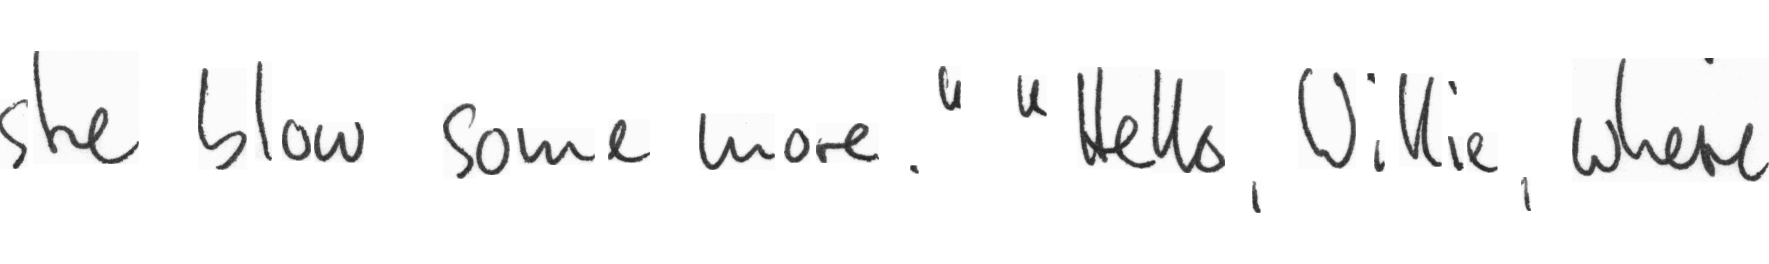 she blow some more." "Hello, Willie, where